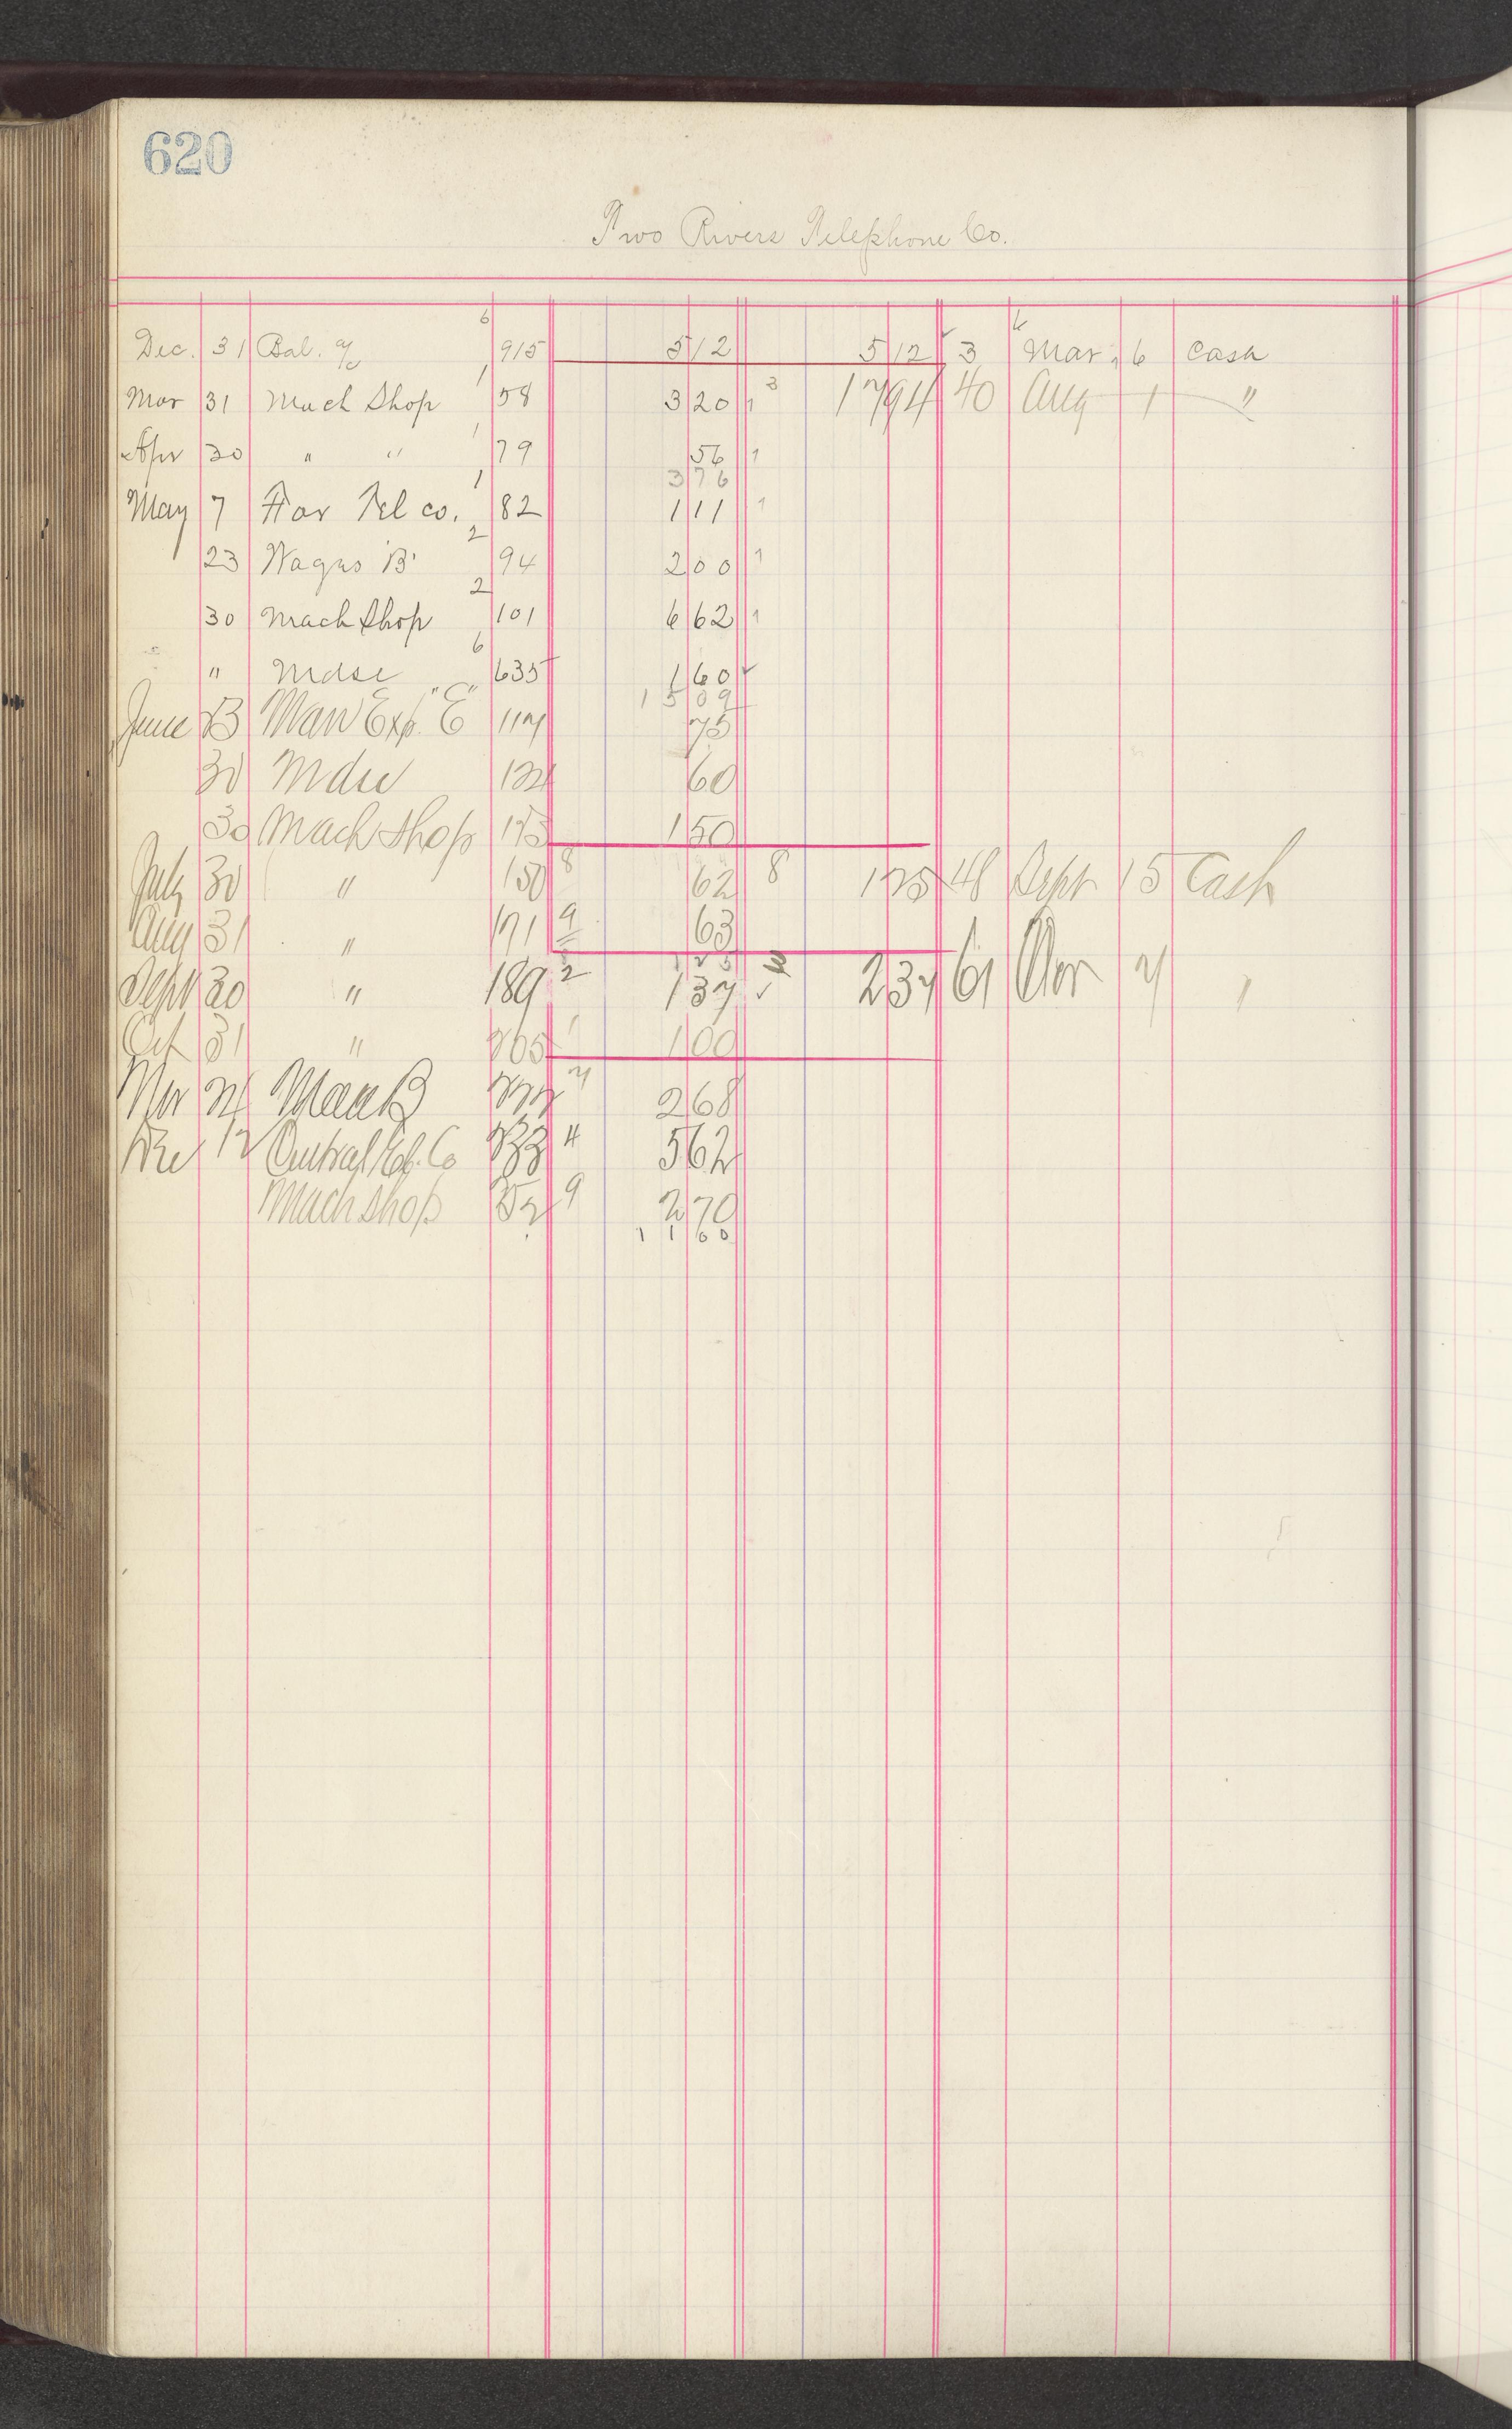 620
Two Rivers Telephone Co.
Dec. 31 Bal. a/c 6 915 5 12 5 12 3 Mar. 6 Cash
Mar 31 Mach Shop 1 58 3 20 1 3 17 94 40 Aug 1 "
Apr 30 " " 1 79 56 1
3 76
May 7 Har Tel co. 1 82 1 11 1
23 Wages 'B' 2 94 2 00 1
30 Mach Shop 2 101 6 62 1
" Mdse 6 635 1 60
15 09
June 23 Man Exp. "E" 117 75
30 Mdse 124 60
30 Mach Shop 1 50
July 30 " 150 8 62 8 1 25 48 Sept 15 Cash
Aug 31 " 171 9 63
1 25
Sept 30 " 189 2 1 37 2 37 61 Nov 7 "
Oct 31 " 205 1 1 00
Nov 24 Man B 7 2 68
Dec 12 Central Tel. Co 233 4 5 62
Mach Shop 252 9 2 70
11 00